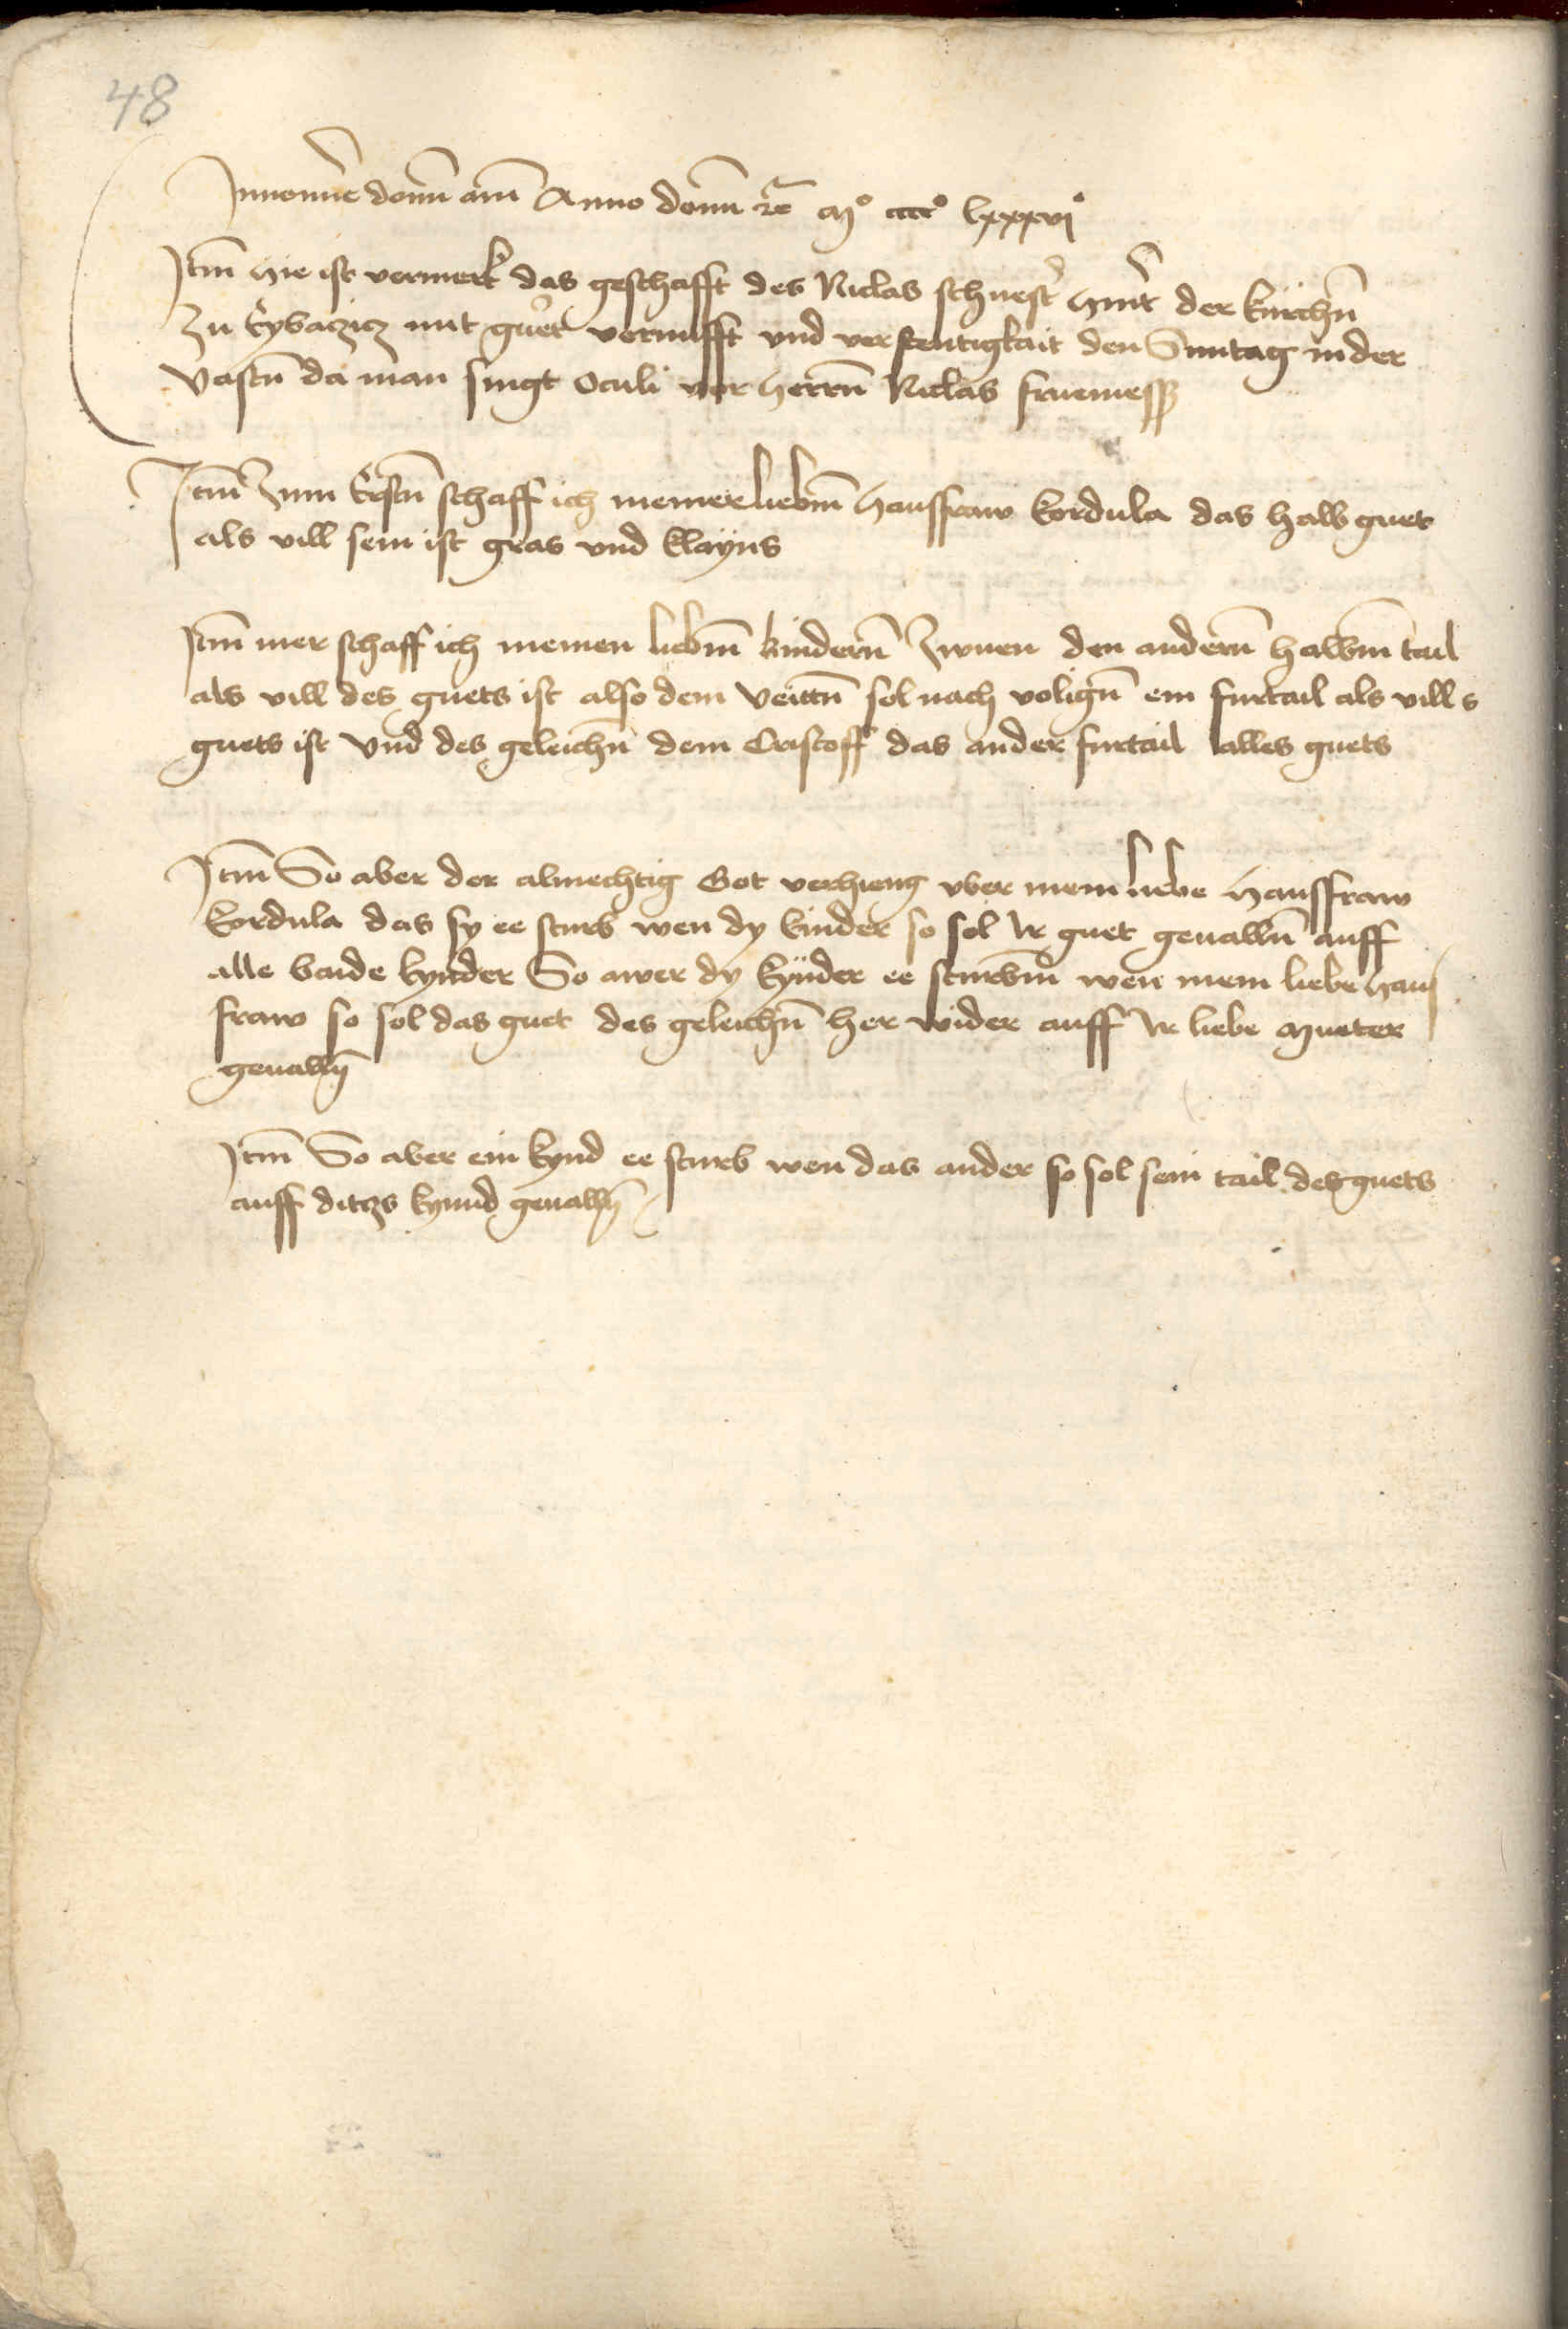 48
Innomine domini amen Anno domini etc̄ mº ccccº lxxxviº
Itm̄ hie ist vermerkt das geschafft des Niclas schuester hinter der kirchn̄
Zu Eybaczicz mit gueter vernufft vnd verstentigkait den Suntag in der
Vastn̄ da man singt Oculi vor herrn̄ Niclas fruemesser
Itm̄ Zum Erstn̄ schaff ich meiner liebm̄ hausfraw Kordula das halb guet
als vill sein ist gras vnd klayns
Itm̄ mer schaff ich meinen liebm̄ kindern̄ Zwuen den andern̄ halbm̄ tail
als vill des guets ist also dem Veittn̄ sol nach volign̄ ein furtail als vill s
guets ist Vnd des geleichn̄ dem Cristoff das ander furtail alles guets
Itm̄ So aber der almechtig Got verhieng vber mein liebe hausfraw
Kordula das sy ee sturb wen dy kinder so sol Ir guet geualln̄ auff
alle baide kynder So awer dy kynder ee sturbm̄ wen mein liebe haus
fraw so sol das guet des geleichn̄ her wider auff Ir liebe mueter
gevalln̄
Itm̄ So aber ein kynd ee sturb wen das ander so sol sein tail des guets
auff ditzs kynnd geualln̄